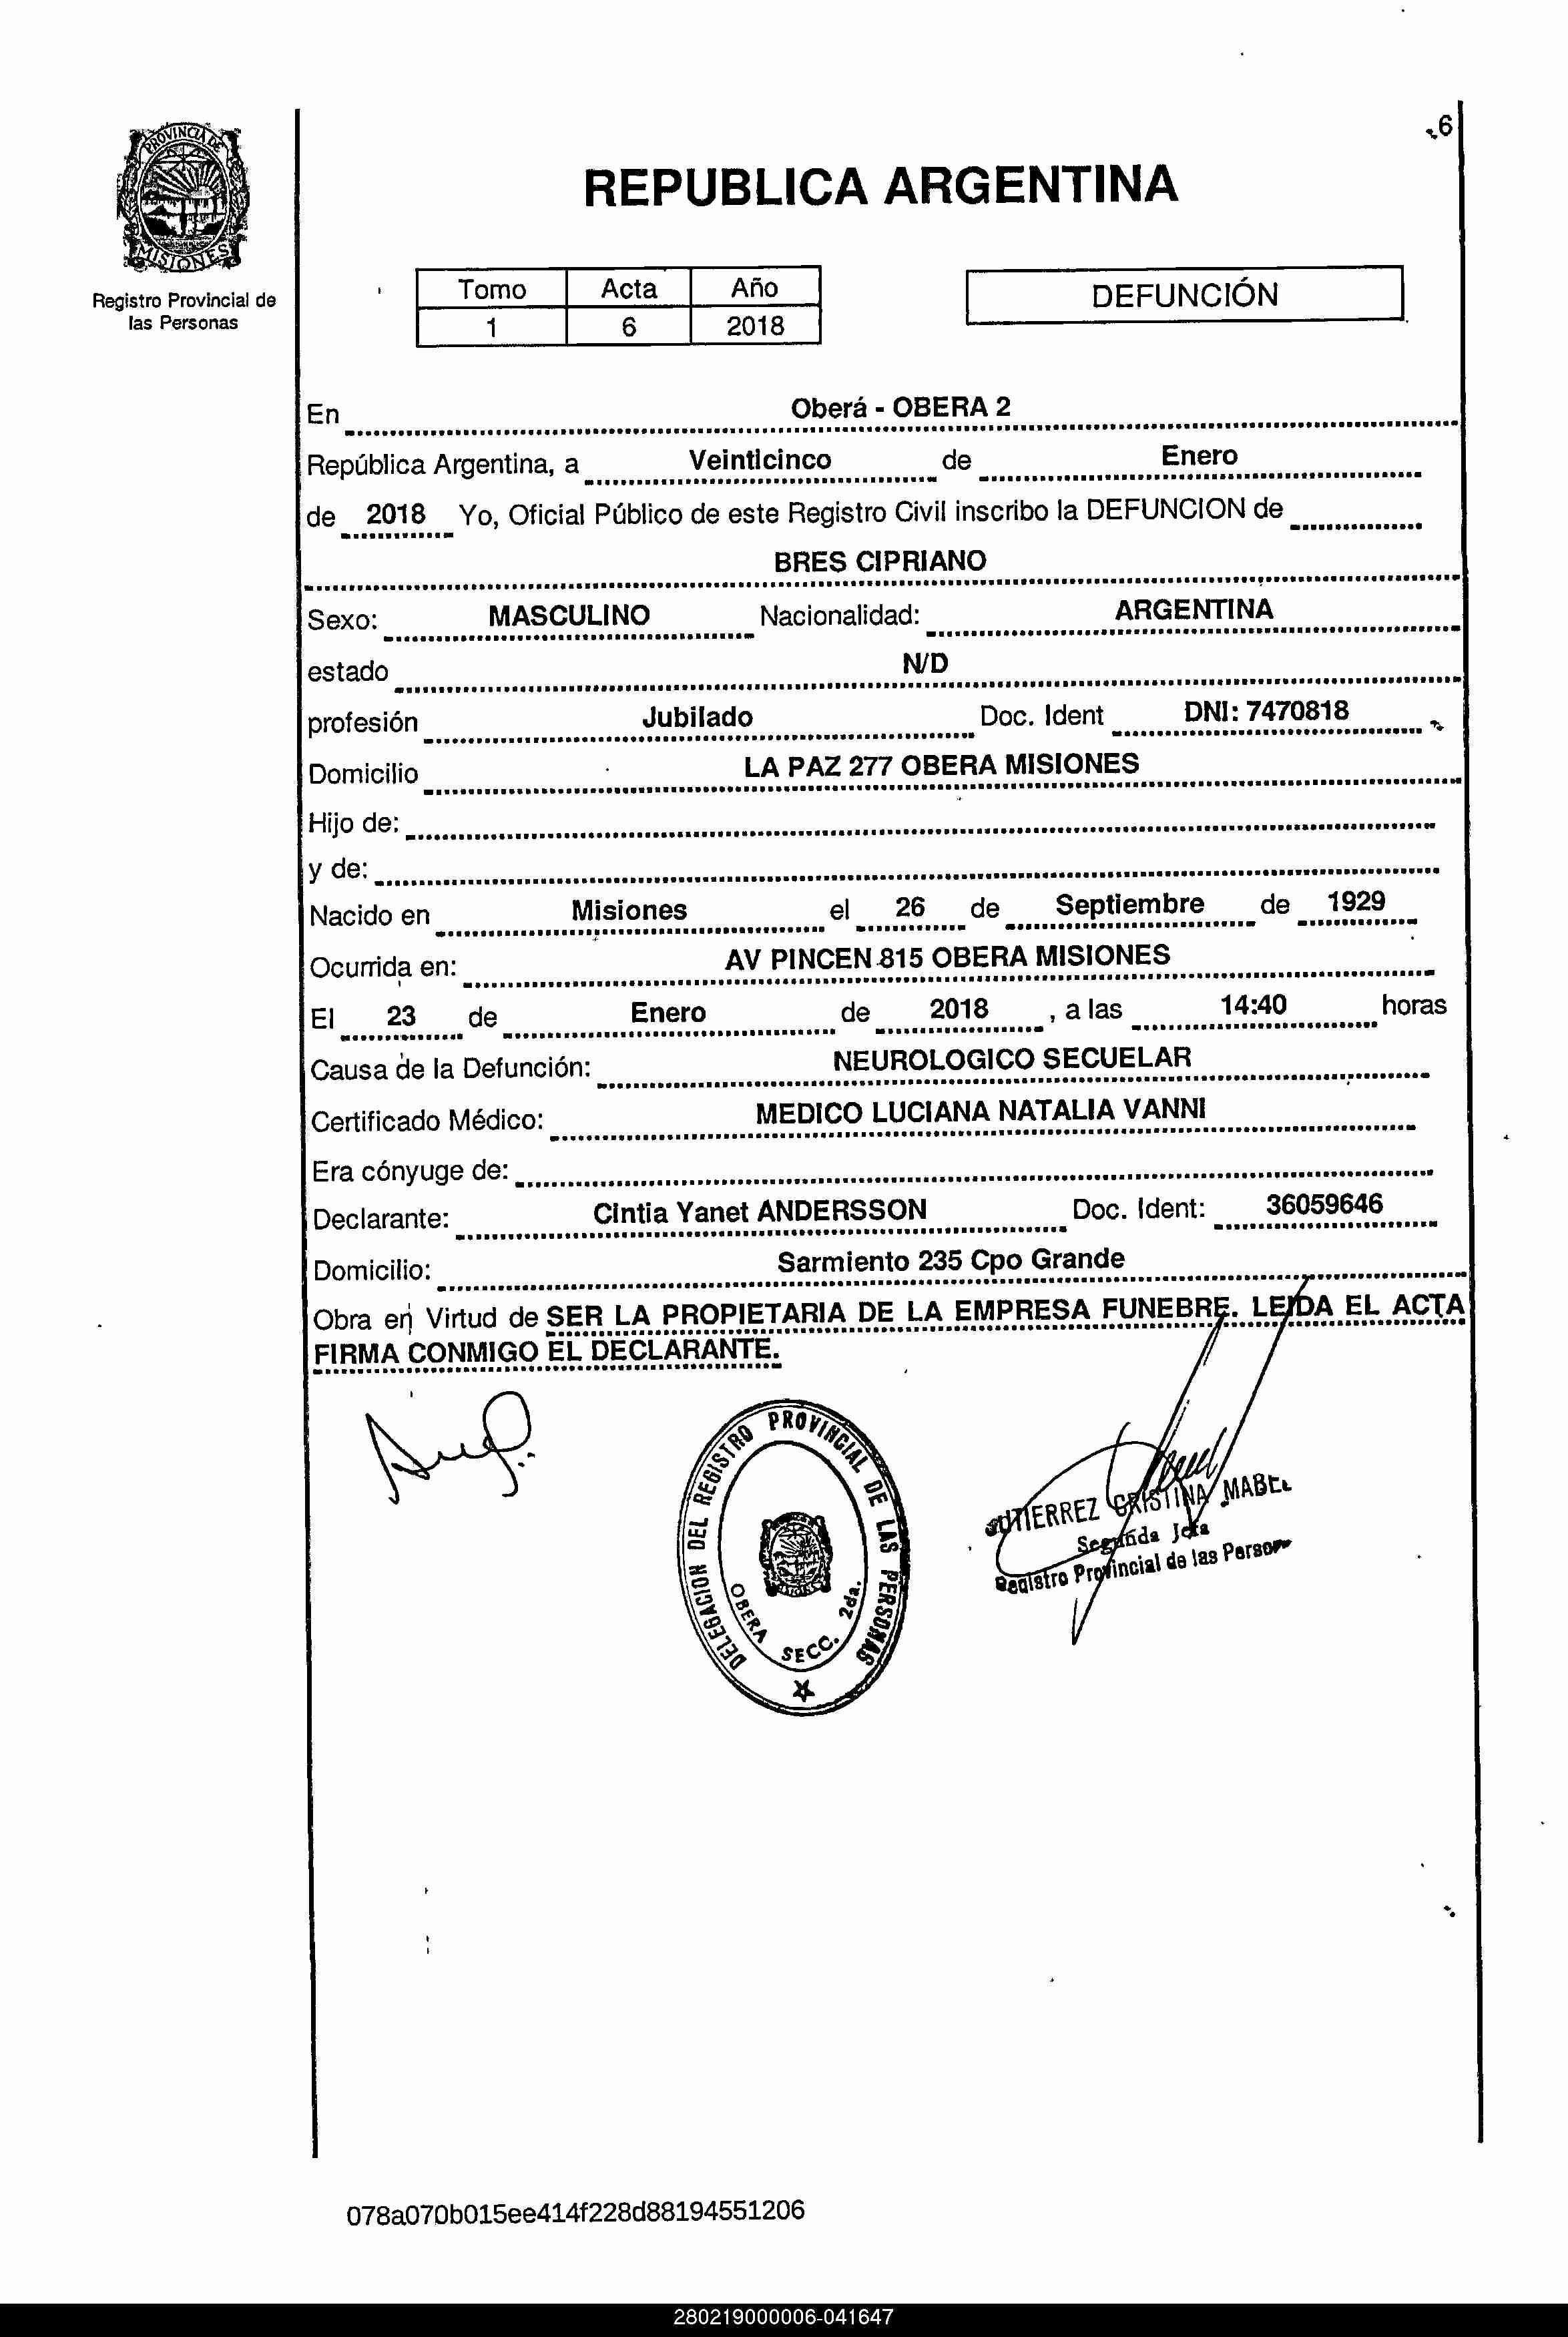 .6
PROVINCIA DE
MISIONES
Registro Provincial de
las Personas
REPUBLICA ARGENTINA
Tomo Acta Año
1 6 2018
DEFUNCIÓN
En Oberá - OBERA 2
República Argentina, a Veinticinco de Enero
de 2018 Yo, Oficial Público de este Registro Civil inscribo la DEFUNCION de
BRES CIPRIANO
Sexo: MASCULINO Nacionalidad: ARGENTINA
estado N/D
profesión Jubilado Doc. Ident DNI: 7470818
Domicilio LA PAZ 277 OBERA MISIONES
Hijo de:
y de:
Nacido en Misiones el 26 de Septiembre de 1929
Ocurrida en: AV PINCEN 815 OBERA MISIONES
El 23 de Enero de 2018 , a las 14:40 horas
Causa de la Defunción: NEUROLOGICO SECUELAR
Certificado Médico: MEDICO LUCIANA NATALIA VANNI
Era cónyuge de:
Declarante: Cintia Yanet ANDERSSON Doc. Ident: 36059646
Domicilio: Sarmiento 235 Cpo Grande
Obra en Virtud de SER LA PROPIETARIA DE LA EMPRESA FUNEBRE. LEIDA EL ACTA
FIRMA CONMIGO EL DECLARANTE.
DELEGACION DEL REGISTRO PROVINCIAL DE LAS PERSONAS
OBERA SECC. 2da.
GUTIERREZ CRISTINA MABEL
Segunda Jefa
Registro Provincial de las Person
078a070b015ee414f228d88194551206
280219000006-041647